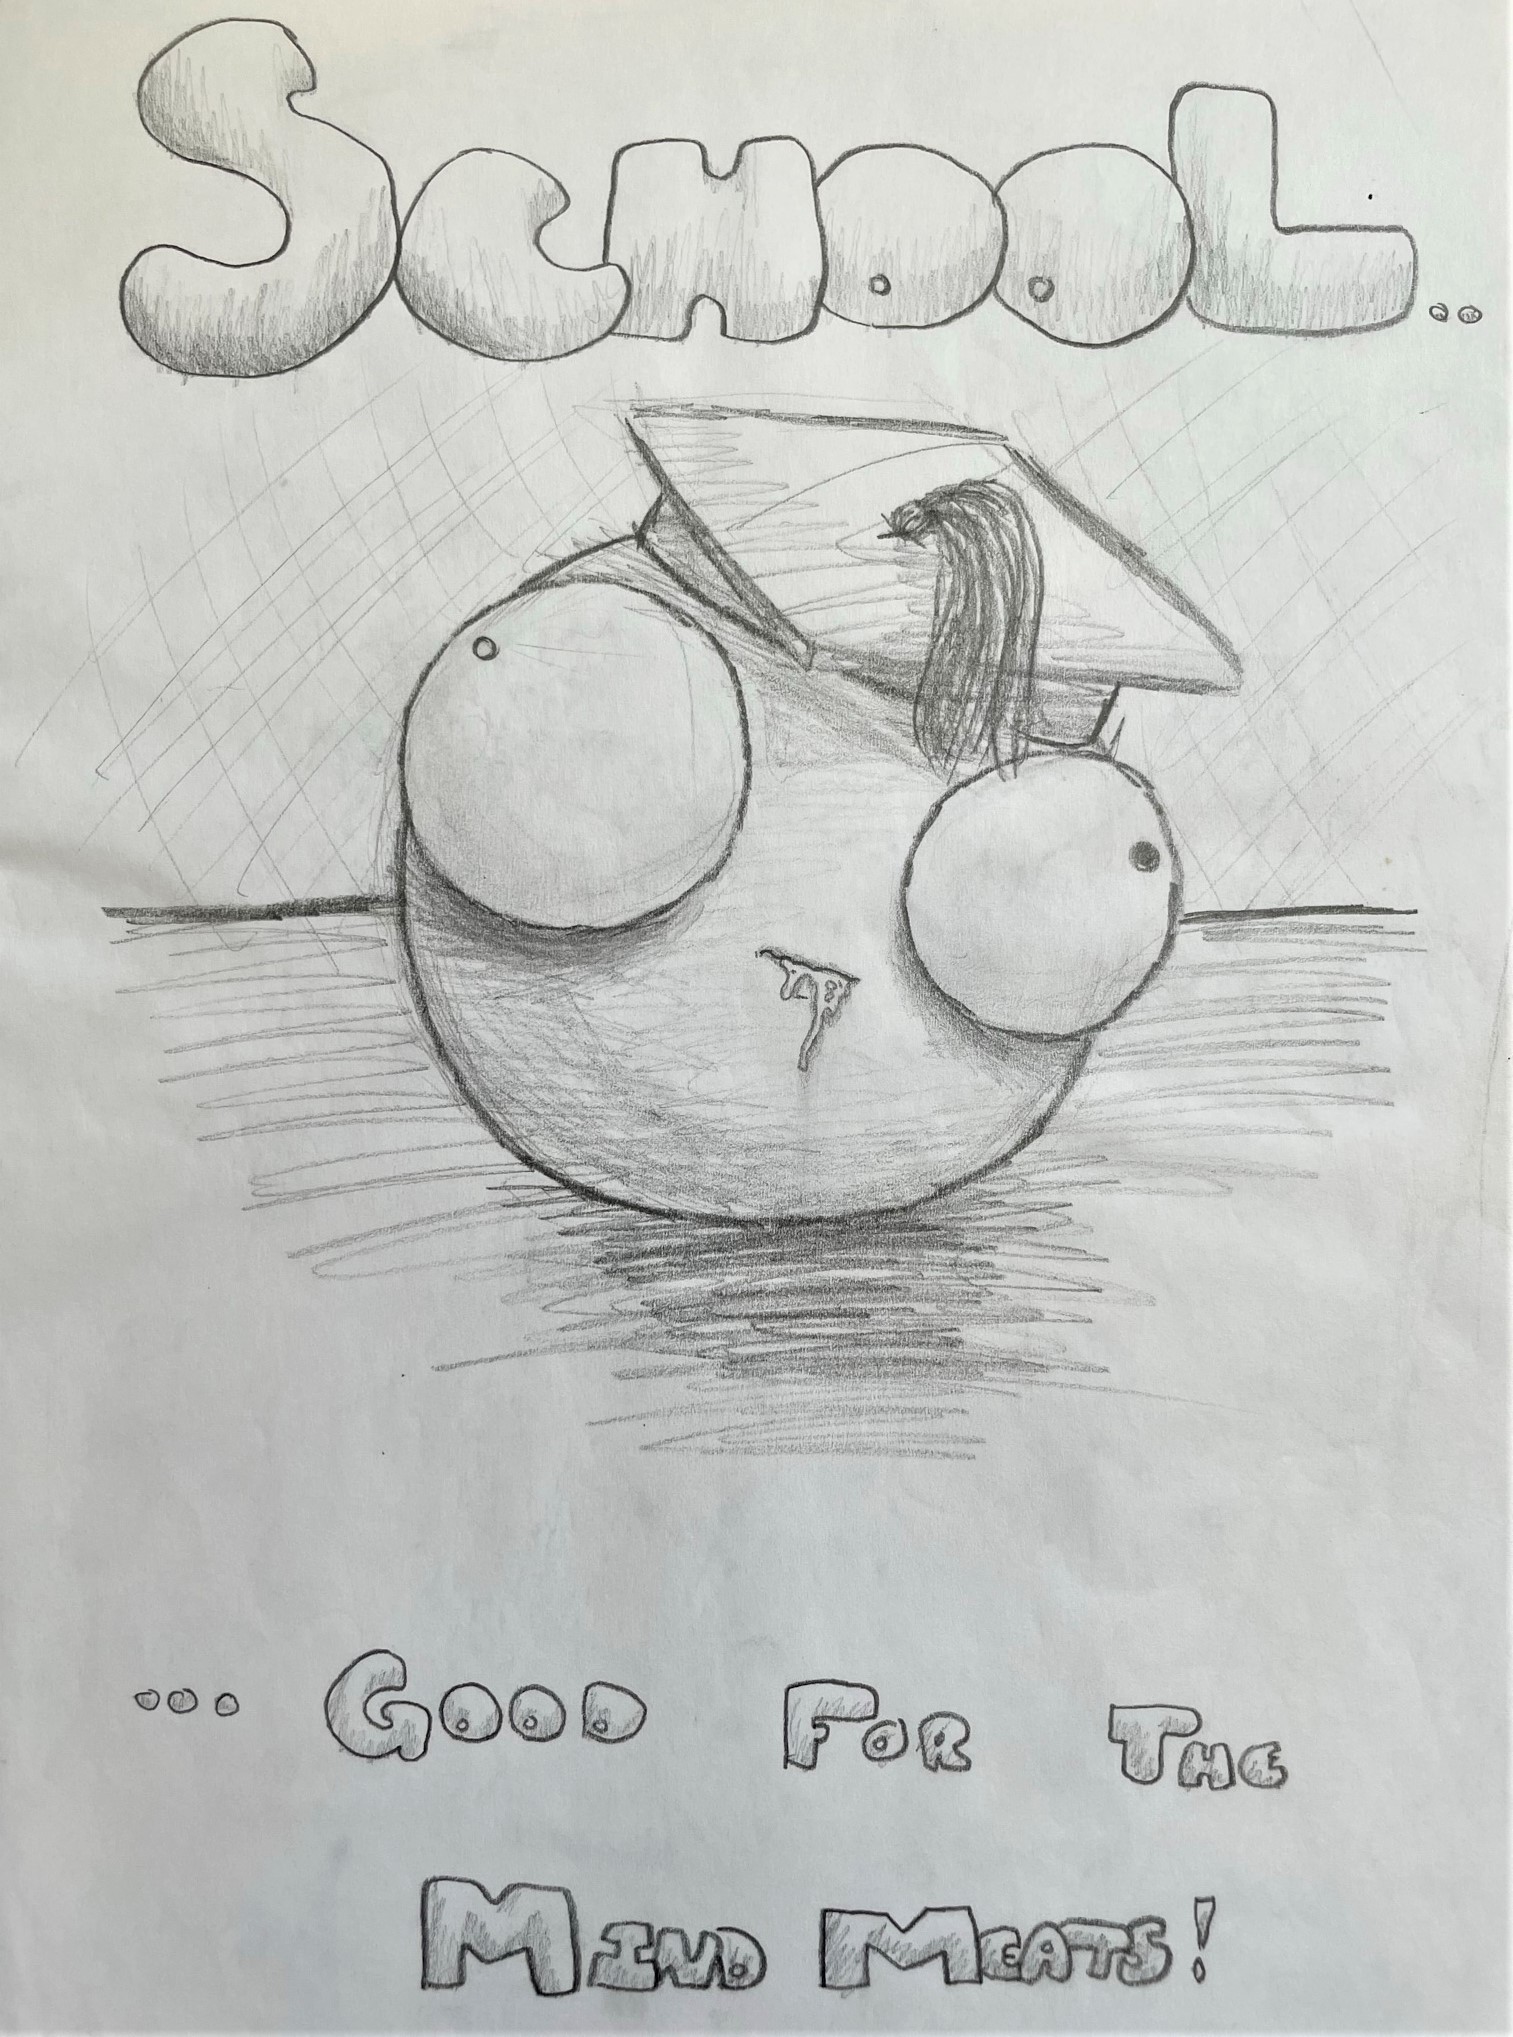 SCHOOL..
... GOOD FOR THE
MIND MEATS!